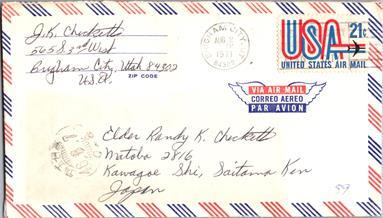 J.K. Checketts
565 S 3rd West
Brigham City, Utah 84302
U.S.A.
ZIP CODE
BRIGHAM CITY, UT
AUG
1971
84302
USA 21c
UNITED STATES AIR MAIL
VIA AIR MAIL
CORREO AEREO
PAR AVION
Elder Randy K. Checketts
Matoba 2816
Kawagoe Shi, Saitama Ken
Japan